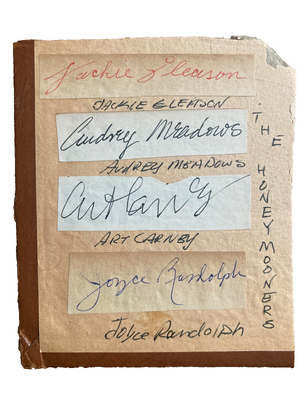 Jackie Gleason
JACKIE GLEASON
Audrey Meadows
AUDREY MEADOWS
Art Carney
ART CARNEY
Joyce Randolph
Joyce Randolph
THE HONEYMOONERS